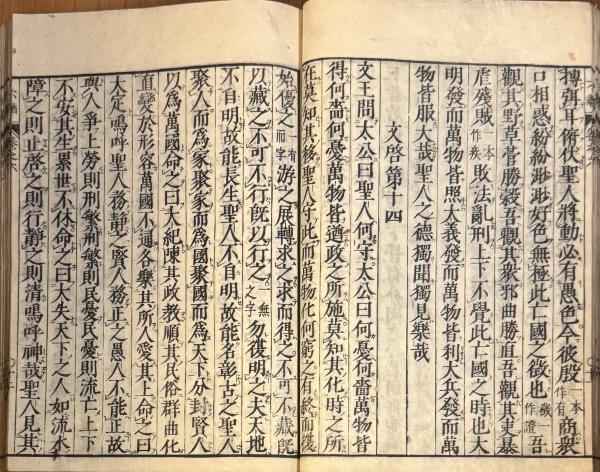 搏弭耳俯伏聖人將動必有愚色今彼殷一本作有商衆
口相惑紛紛渺渺好色無極此亡國之徵徵一作證也吾
觀其野草菅勝穀吾觀其衆邪曲勝直吾觀其吏暴
虐殘賊一本作疾敗法亂刑上下不覺此亡國之時也大
明發而萬物皆照大義發而萬物皆利大兵發而萬
物皆服大哉聖人之德獨聞獨見樂哉
文啓第十四
文王問太公曰聖人何守太公曰何憂何嗇萬物皆
得何嗇何憂萬物皆遒政之所施莫知其化時之所
在莫知其移聖人守此而萬物化何窮之有終而復
始優之有而字游之展轉求之求而得之不可不藏既
以藏之不可不行既以行之一無之字勿復明之夫天地
不自明故能長生聖人不自明故能名彰古之聖人
聚人而爲家聚家而爲國聚國而爲天下分封賢人
以爲萬國命之曰大紀陳其政教順其民俗群曲化
直變於形容萬國不通各樂其所人愛其上命之曰
大定嗚呼聖人務靜之賢人務正之愚人不能正故
與人爭上勞則刑繁刑繁則民憂民憂則流亡上下
不安其生累世不休命之曰大失天下之人如流水
障之則止啓之則行靜之則清嗚呼神哉聖人見其